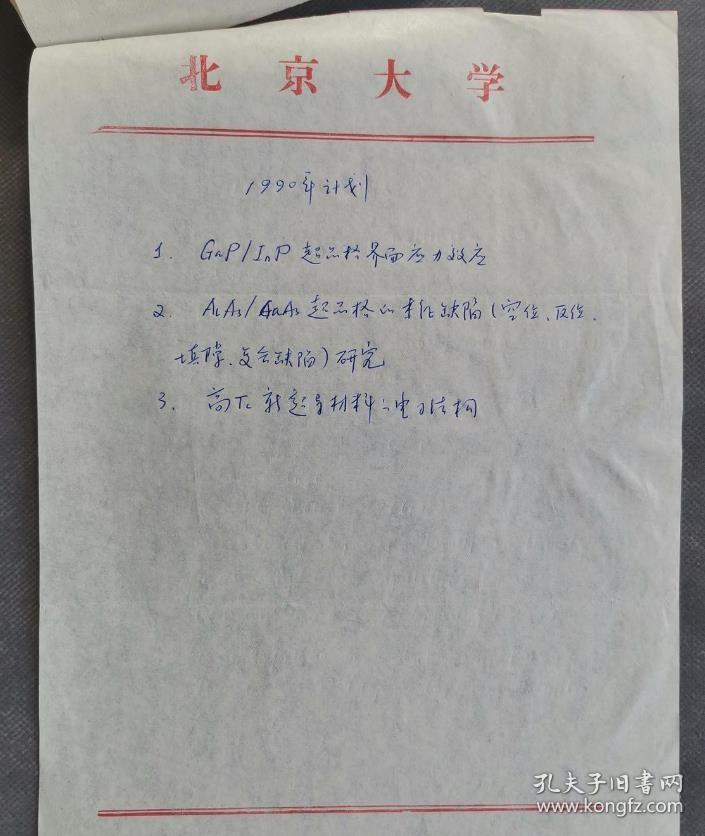 北京大学
1990年计划
1. GaP/InP超晶格界面应力效应
2. AlAs/GaAs超晶格的本征缺陷(空位、反位、
填隙、复合缺陷)研究
3. 高Tc新超导材料的电子结构
孔夫子旧书网
www.kongfz.com